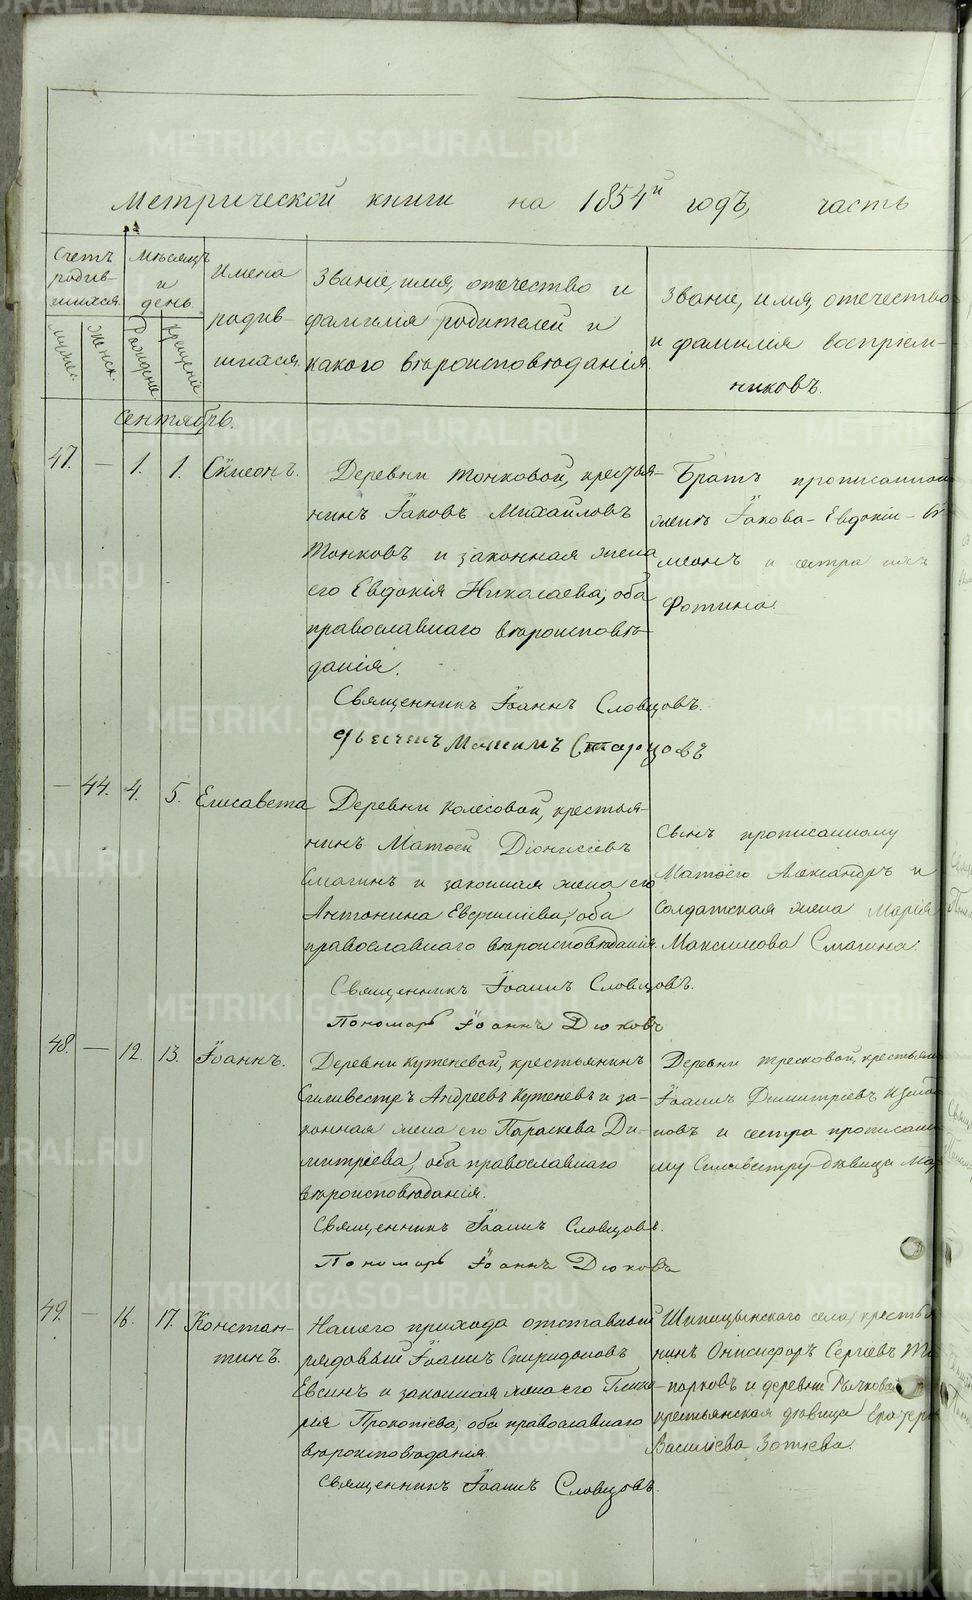 Метрической книги на 1854й годъ, часть
Счетъ родив-шихся.
мужес.
женск.
Мѣсяцъ и день
Рожденія
Крещенія
Имена родив-шихся.
Званіе, имя, отчество и
фамилія родителей и
какого вѣроисповѣданія.
Званіе, имя, отчество
и фамилія воспріем-
никовъ.
Сентябрь.
47. — 1. 1. Сѵмеонъ.
Деревни Тонковой, крестья-
нинъ Іаковъ Михайловъ
Тонковъ и законная жена
его Евдокія Николаева, оба
православнаго вѣроисповѣ-
данія.
Священникъ Іоаннъ Словцовъ.
Дьячекъ Максимъ Старцовъ
Братъ прописанной
жены Іакова - Евдокіи - Сѵ
меонъ и сестра ихъ
Фотина.
— 44. 4. 5. Елисавета
Деревни Колесовой, крестья-
нинъ Матѳей Діонисіевъ
Смагинъ и законная жена его
Антонина, оба
православнаго вѣроисповѣданія.
Священникъ Іоаннъ Словцовъ.
Пономарь Іоаннъ Дюковъ
Сынъ прописанному
Матѳею Александръ и
солдатская жена Марія
Максимова Смагина.
48. — 12. 13. Іоаннъ.
Деревни Куженевой, крестьянинъ
Сильвестръ Андреевъ Куженевъ и за-
конная жена его Параскева Ди-
митріева, оба православнаго
вѣроисповѣданія.
Священникъ Іоаннъ Словцовъ.
Пономарь Іоаннъ Дюковъ
Деревни Тресковой, крестьян
Іоаннъ Димитріевъ
новъ и сестра прописан
му Сильвестру дѣвица Мар
49. — 16. 17. Констан-
тинъ.
Нашего прихода отставный
рядовый Іоаннъ Спиридоновъ
Евсинъ и законная жена его Глике
рія Прокопіева, оба православнаго
вѣроисповѣданія.
Священникъ Іоаннъ Словцовъ.
Шипицынскаго села, крестья
нинъ Онисифоръ Сергіевъ
и деревни Рычковой
крестьянская дѣвица
Василіева Зотѣева.
METRIKI.GASO-URAL.RU